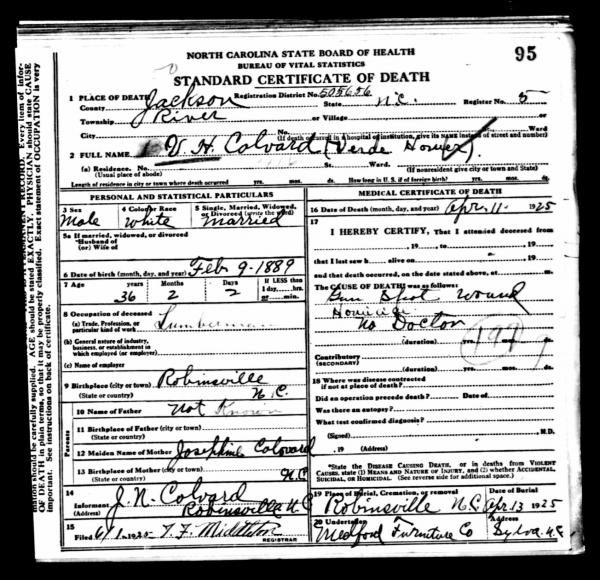 95
NORTH CAROLINA STATE BOARD OF HEALTH
BUREAU OF VITAL STATISTICS
STANDARD CERTIFICATE OF DEATH
1 PLACE OF DEATH Registration District No. 505656
County Jackson State N.C. Register No. 5
Township River or Village
City No. Ward
(If death occurred in a hospital or institution, give its NAME instead of street and number)
2 FULL NAME V. H. Colvard (Verde Homer)
(a) Residence. No. St. Ward.
(Usual place of abode) (If nonresident give city or town and State)
Length of residence in city or town where death occurred yrs. mos. ds. How long in U. S. if of foreign birth? yrs. mos. ds.
PERSONAL AND STATISTICAL PARTICULARS
3 Sex 4 Color or Race 5 Single, Married, Widowed, or Divorced (write the word)
Male White Married
5a If married, widowed, or divorced
*Husband of
(or) Wife of
6 Date of birth (month, day, and year) Feb 9-1889
7 Age years Months Days If LESS than
1 day, hrs.
or min.
36 2 2
8 Occupation of deceased
(a) Trade, Profession, or particular kind of work Lumberman
(b) General nature of industry,
business, or establishment in
which employed (or employer)
(c) Name of employer
9 Birthplace (city or town) Robinsville
(State or country) N.C.
Parents
10 Name of Father Not Known
11 Birthplace of Father (city or town)
(State or country)
12 Maiden Name of Mother Josephine Colovard
13 Birthplace of Mother (city or town)
(State or country) N.C.
14
Informant J. N. Colvard
(Address) Robinsville N.C
15
Filed 6/1 1925 T. F. Middleton
REGISTRAR
MEDICAL CERTIFICATE OF DEATH
16 Date of Death (month, day, and year) Apr. 11 1925
17
I HEREBY CERTIFY, That I attended deceased from
19 to 19
that I last saw h alive on 19
and that death occurred, on the date stated above, at m.
The CAUSE OF DEATH was as follows:
Gun Shot Wound
Homicide
No Doctor
(duration) yrs. mos. ds.
Contributory
(SECONDARY)
(duration) yrs. mos. ds.
18 Where was disease contracted
if not at place of death?
Did an operation precede death? Date of
Was there an autopsy?
What test confirmed diagnosis?
(Signed) M.D.
, 19 (Address)
*State the DISEASE CAUSING DEATH, or in deaths from VIOLENT
CAUSES, state (1) MEANS AND NATURE OF INJURY, and (2) whether ACCIDENTAL,
SUICIDAL, OR HOMICIDAL. (See reverse side for additional space.)
19 Place of Burial, Cremation, or removal Date of Burial
Robinsville N.C. Apr 13 1925
20 Undertaker Address
Medford Furniture Co Sylva N.C